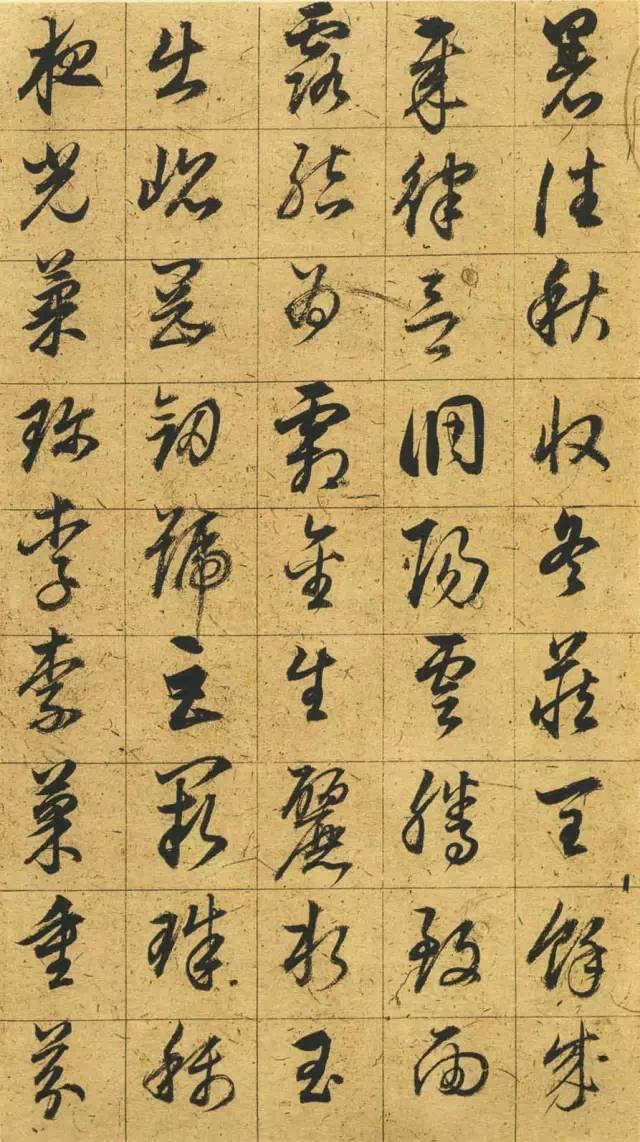 暑往秋收冬藏閏餘成
歲律呂調陽雲騰致雨
露結為霜金生麗水玉
出崑岡劍號巨闕珠稱
夜光菓珍李柰菜重芥